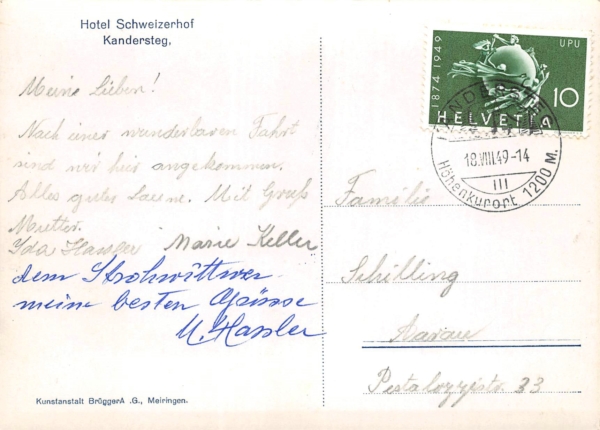 Hotel Schweizerhof
Kandersteg,
Meine Lieben!
Nach einer wunderbaren Fahrt
sind wir hier angekommen.
Alles guter Laune. Mit Gruß
Mutter.
Ida Hassler Marie Keller
dem Strohwittwer
meine besten Grüsse
M. Hassler
Kunstanstalt BrüggerA .G., Meiringen.
1874-1949
UPU
10
HELVETIA
KANDERSTEG
18.VIII.49-14
III
Höhenkurort 1200 M.
Familie
Schilling
Aarau
Pestalozzistr. 33